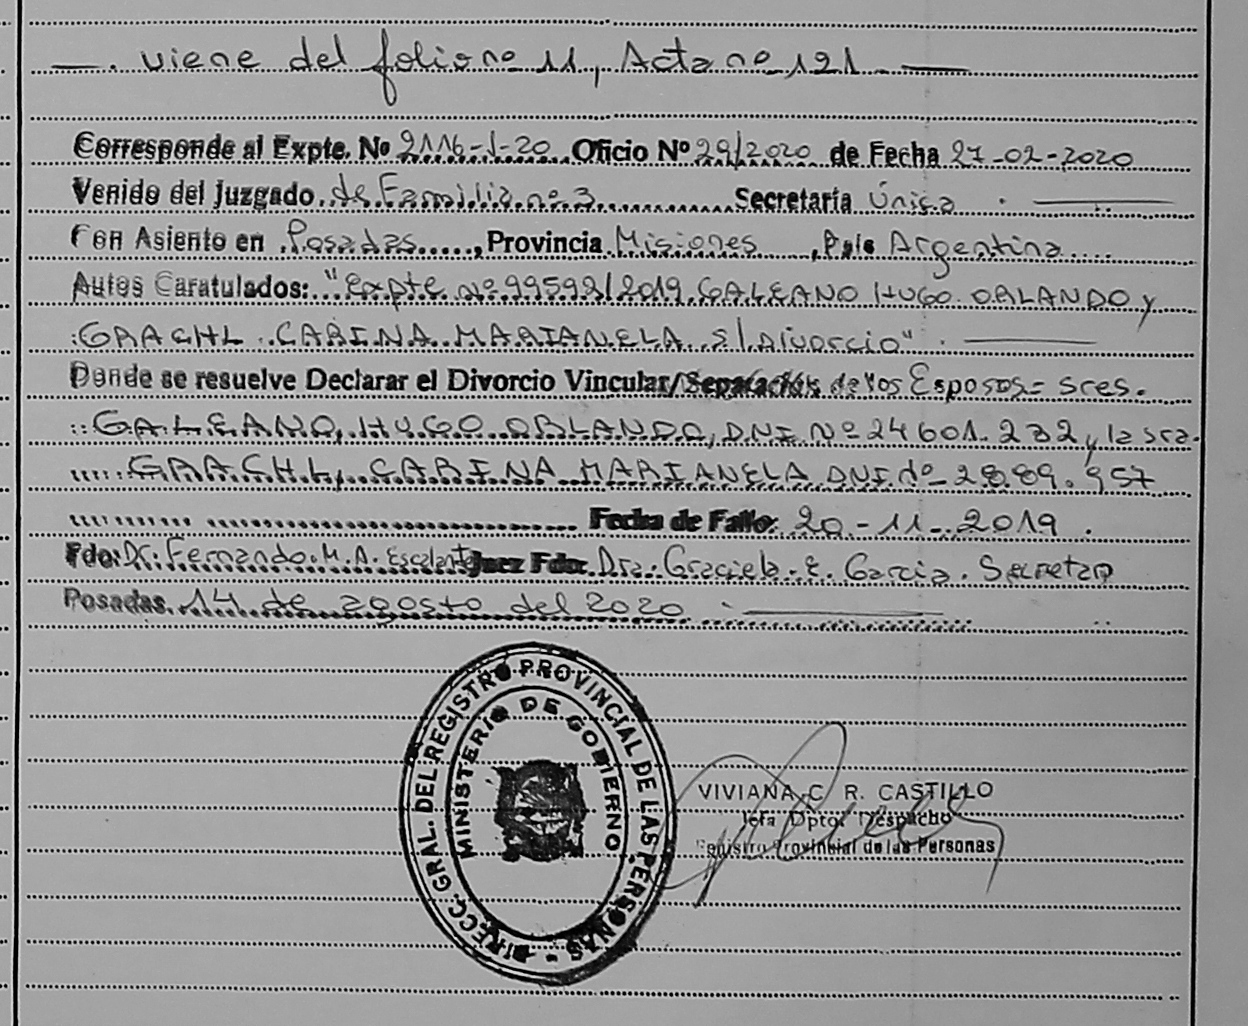 —. viene del folio nº 11, Acta nº 121 —
Corresponde al Expte. Nº 2116-J-20 Oficio Nº 29/2020 de Fecha 27-02-2020
Venido del Juzgado de Familia nº 3 Secretaría Única . —
Con Asiento en Posadas, Provincia Misiones, País Argentina
Autos Caratulados: "Expte nº 99592/2019 GALEANO HUGO ORLANDO y
GRACHL CARINA MARIANELA s/Divorcio" . —
Donde se resuelve Declarar el Divorcio Vincular/Separación de los Esposos = Sres.
GALEANO, HUGO ORLANDO, DNI Nº 24601.232 y la sra.
GRACHL, CARINA MARIANELA DNI nº 28.89.957
Fecha de Fallo: 20-11-2019.
Fdo: Dr. Fernando M. A. Escalante Juez Fdo: Dra. Graciela E. Garcia. Secretar
Posadas, 14 de agosto del 2020 . —
DIRECC. GRAL. DEL REGISTRO PROVINCIAL DE LAS PERSONAS -
MINISTERIO DE GOBIERNO
VIVIANA C. R. CASTILLO
Jefa Dpto. Despacho
Registro Provincial de las Personas